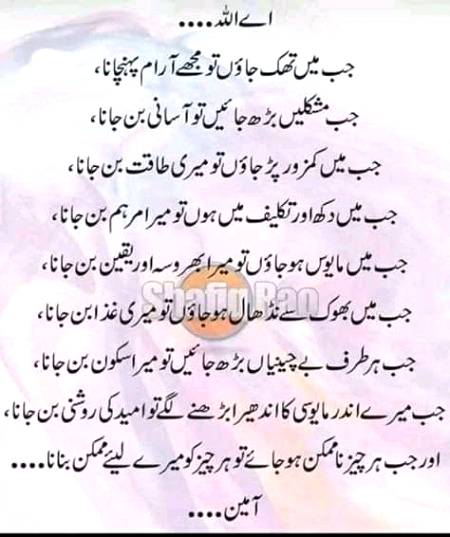 اے اللہ ....
جب میں تھک جاؤں تو مجھے آرام پہنچانا،
جب مشکلیں بڑھ جائیں تو آسانی بن جانا،
جب میں کمزور پڑ جاؤں تو میری طاقت بن جانا،
جب میں دکھ اور تکلیف میں ہوں تو میرا مرہم بن جانا،
جب میں مایوس ہو جاؤں تو میرا بھروسہ اور یقین بن جانا،
Shafiq Rao
جب میں بھوک سے نڈھال ہو جاؤں تو میری غذا بن جانا،
جب ہر طرف بے چینیاں بڑھ جائیں تو میرا سکون بن جانا،
جب میرے اندر مایوسی کا اندھیرا بڑھنے لگے تو امید کی روشنی بن جانا،
اور جب ہر چیز ناممکن ہو جائے تو ہر چیز کو میرے لیئے ممکن بنانا ....
آمین ....